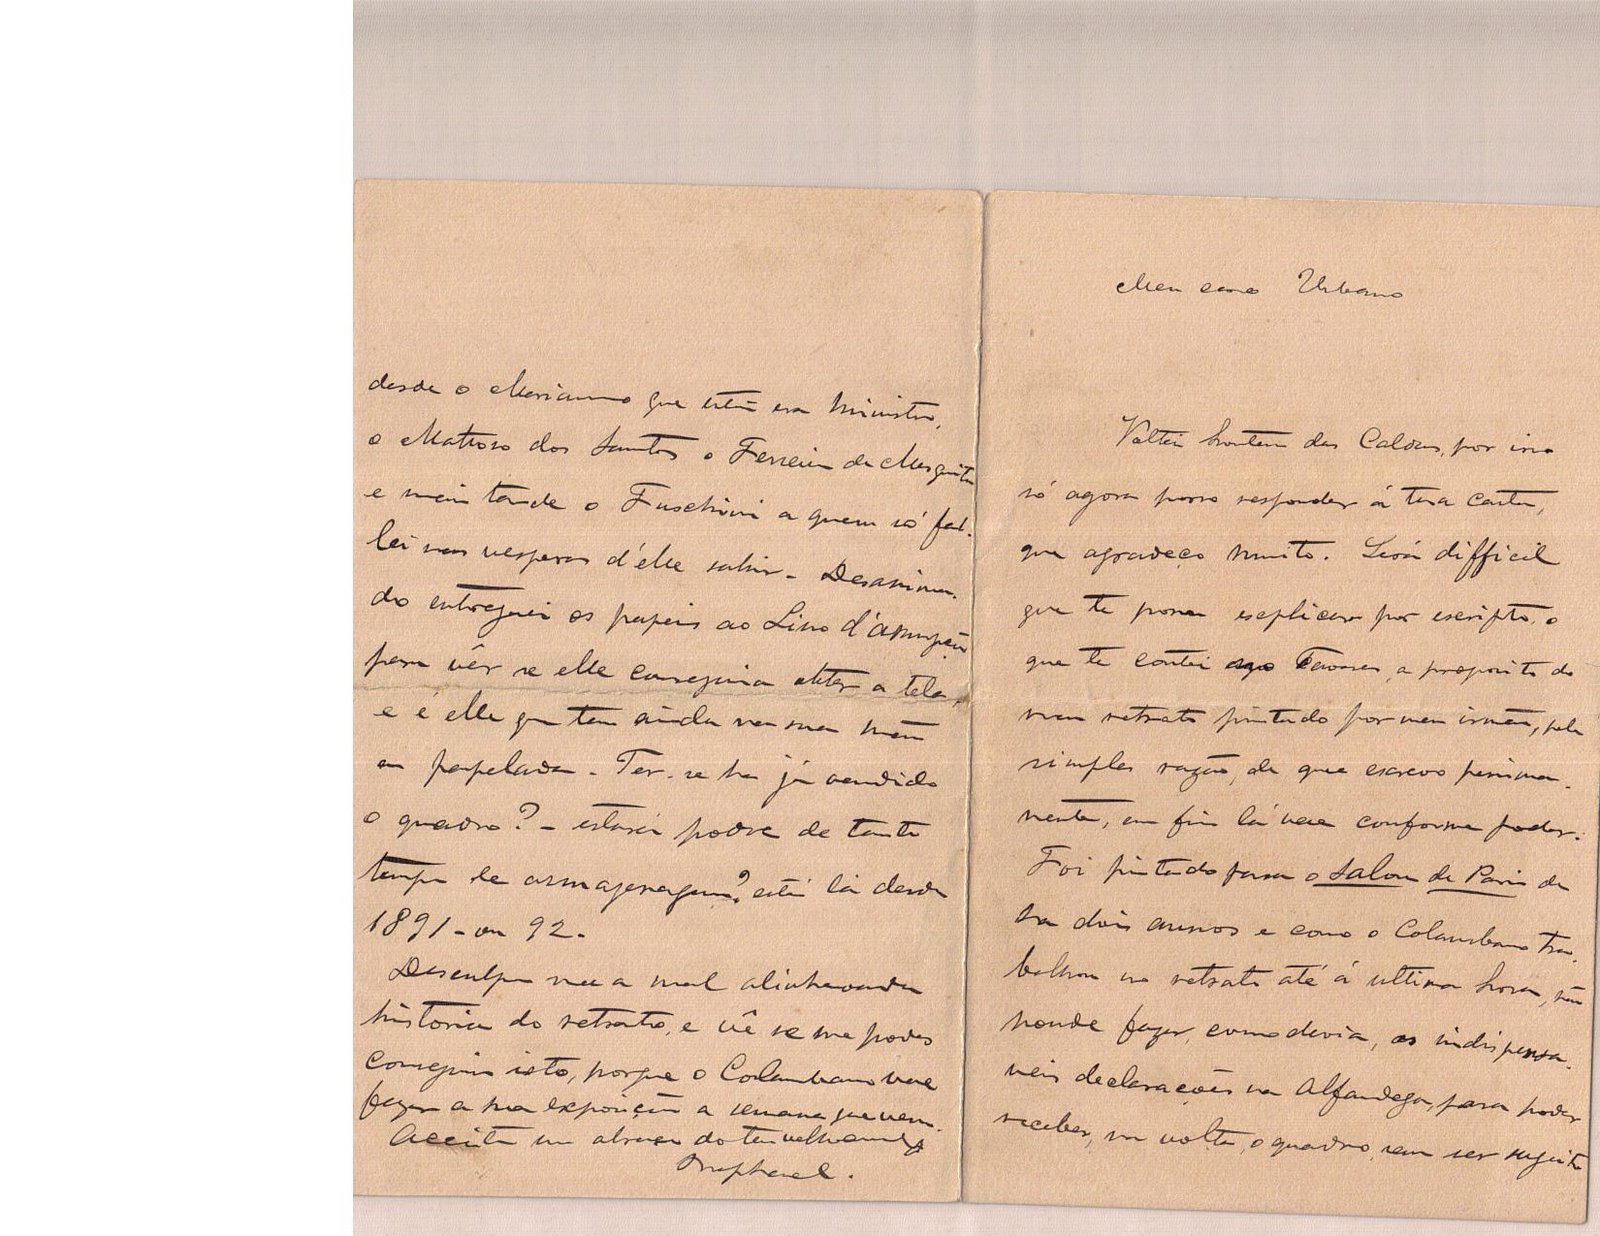 Meu caro Urbano
Voltei hontem das Caldas, por isso
só agora posso responder á tua carta,
que agradeço muito. Será difficil
que te possa explicar por escripto o
que te contei no Tavares, a proposito do
meu retrato pintado por meu irmão, pela
simples razão, de que escrevo pessima-
mente, em fim lá vae conforme poder:
Foi pintado para o Salon de Paris de
ha dois annos e como o Columbano tra-
balhou no retrato até á ultima hora, não
poude fazer, como devia, as indispensa-
veis declarações na Alfandega, para poder
receber, na volta, o quadro, sem ser sugeito
desde o Marianno que então era ministro,
o Mattoso dos Santos o Ferreira de Mesquita
e mais tarde o Fuschini a quem só fal-
lei nas vesperas d'elle sahir - Desanima-
do entreguei os papeis ao Lino d'Assumpção
para vêr se elle conseguia obter a tela,
e é elle que tem ainda na sua mão
a papelada - Ter-se ha já vendido
o quadro? - estará podre de tanto
tempo de armazenagem? está lá desde
1891 - ou 92 -
Desculpa-me a mal alinhavada
historia do retrato, e vê se me podes
conseguir isto, porque o Columbano vae
fazer a sua exposição a semana que vem.
Aceita um abraço do teu velho amº
Raphael.